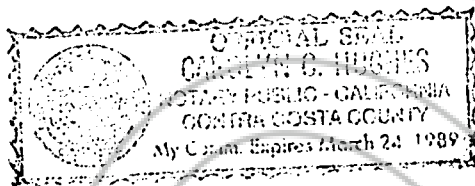 OFFICIAL SEAL
CAROLYN C. HUGHES
NOTARY PUBLIC - CALIFORNIA
CONTRA COSTA COUNTY
My Comm. Expires March 24, 1989